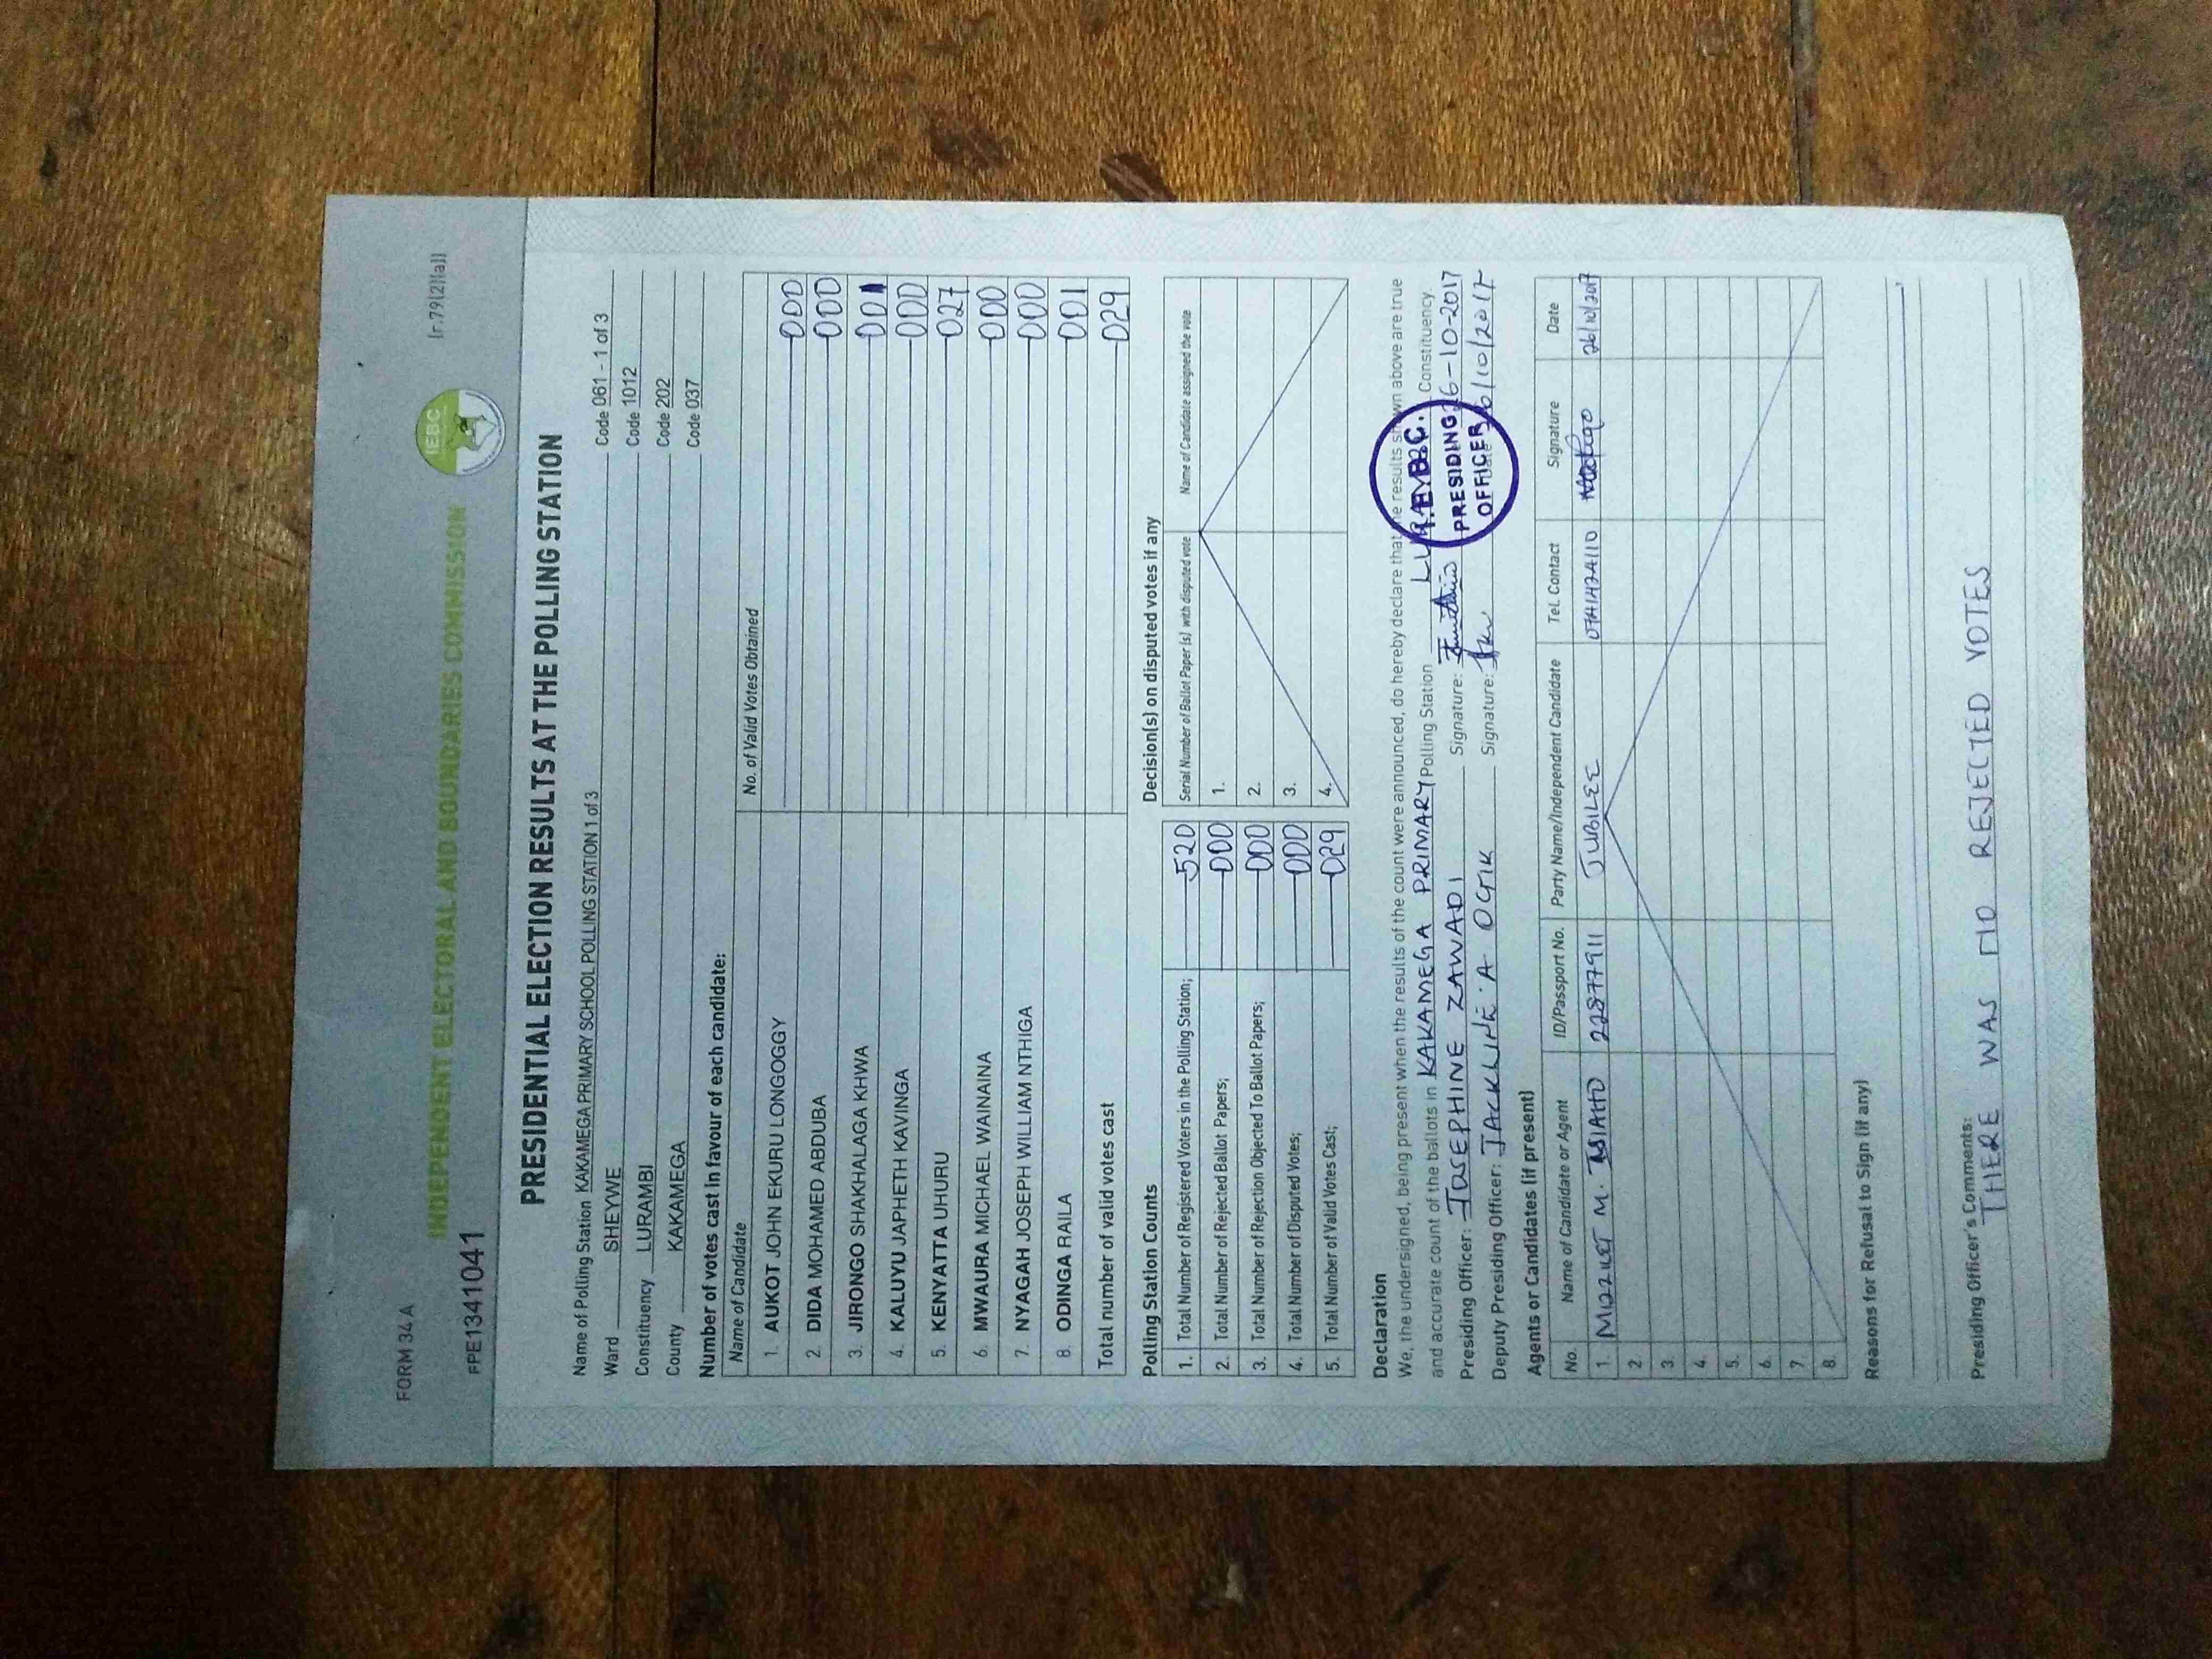 FORM 34 A
[r.79(2)(a)]
INDEPENDENT ELECTORAL AND BOUNDARIES COMMISSION
IEBC
FPE1341041
PRESIDENTIAL ELECTION RESULTS AT THE POLLING STATION
Name of Polling Station KAKAMEGA PRIMARY SCHOOL POLLING STATION 1 of 3 Code 061 - 1 of 3
Ward SHEYWE Code 1012
Constituency LURAMBI Code 202
County KAKAMEGA Code 037
Number of votes cast in favour of each candidate:
Name of Candidate No. of Valid Votes Obtained
1. AUKOT JOHN EKURU LONGOGGY 000
2. DIDA MOHAMED ABDUBA 000
3. JIRONGO SHAKHALAGA KHWA 001
4. KALUYU JAPHETH KAVINGA 000
5. KENYATTA UHURU 027
6. MWAURA MICHAEL WAINAINA 000
7. NYAGAH JOSEPH WILLIAM NTHIGA 000
8. ODINGA RAILA 001
Total number of valid votes cast 029
Polling Station Counts
1. Total Number of Registered Voters in the Polling Station; 520
2. Total Number of Rejected Ballot Papers; 000
3. Total Number of Rejection Objected To Ballot Papers; 000
4. Total Number of Disputed Votes; 000
5. Total Number of Valid Votes Cast; 029
Decision(s) on disputed votes if any
Serial Number of Ballot Paper (s) with disputed vote Name of Candidate assigned the vote
1.
2.
3.
4.
Declaration
We, the undersigned, being present when the results of the count were announced, do hereby declare that the results shown above are true
and accurate count of the ballots in KAKAMEGA PRIMARY Polling Station Constituency.
Presiding Officer: JOSEPHINE ZAWADI Signature: 26-10-2017
Deputy Presiding Officer: JACKLINE A Signature: 26/10/2017
I.E.B.C.
PRESIDING
OFFICER
Agents or Candidates (if present)
No. Name of Candidate or Agent ID/Passport No. Party Name/Independent Candidate Tel. Contact Signature Date
1. M. 22877911 JUBILEE 26/10/2017
2.
3.
4.
5.
6.
7.
8.
Reasons for Refusal to Sign (if any)
Presiding Officer's Comments:
THERE WAS NO REJECTED VOTES